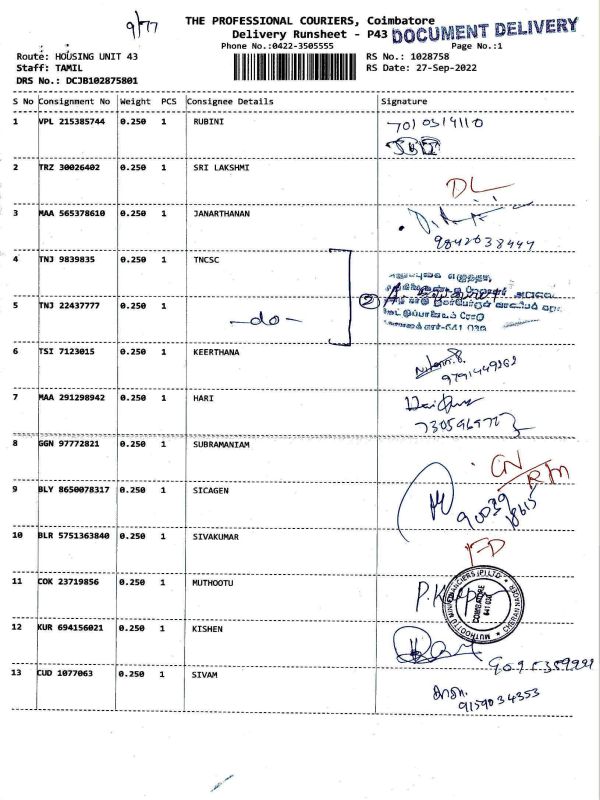 9/77
THE PROFESSIONAL COURIERS, Coimbatore
Delivery Runsheet - P43 DOCUMENT DELIVERY
Phone No.:0422-3505555 Page No.:1
Route: HOUSING UNIT 43 RS No.: 1028758
Staff: TAMIL RS Date: 27-Sep-2022
DRS No.: DCJB102875801
S No Consignment No Weight PCS Consignee Details Signature
1 VPL 215385744 0.250 1 RUBINI 7010319110
2 TRZ 30026402 0.250 1 SRI LAKSHMI DL
3 MAA 565378610 0.250 1 JANARTHANAN
9842038444
4 TNJ 9839835 0.250 1 TNCSC
5 TNJ 22437777 0.250 1 -do- 2
6 TSI 7123015 0.250 1 KEERTHANA
9791449262
7 MAA 291298942 0.250 1 HARI
8 GGN 97772821 0.250 1 SUBRAMANIAM
RM
9 BLY 8650078317 0.250 1 SICAGEN
90039
18615
10 BLR 5751363840 0.250 1 SIVAKUMAR
11 COK 23719856 0.250 1 MUTHOOTU
COIMBATORE
12 KUR 694156021 0.250 1 KISHEN
13 CUD 1077063 0.250 1 SIVAM
9159034353